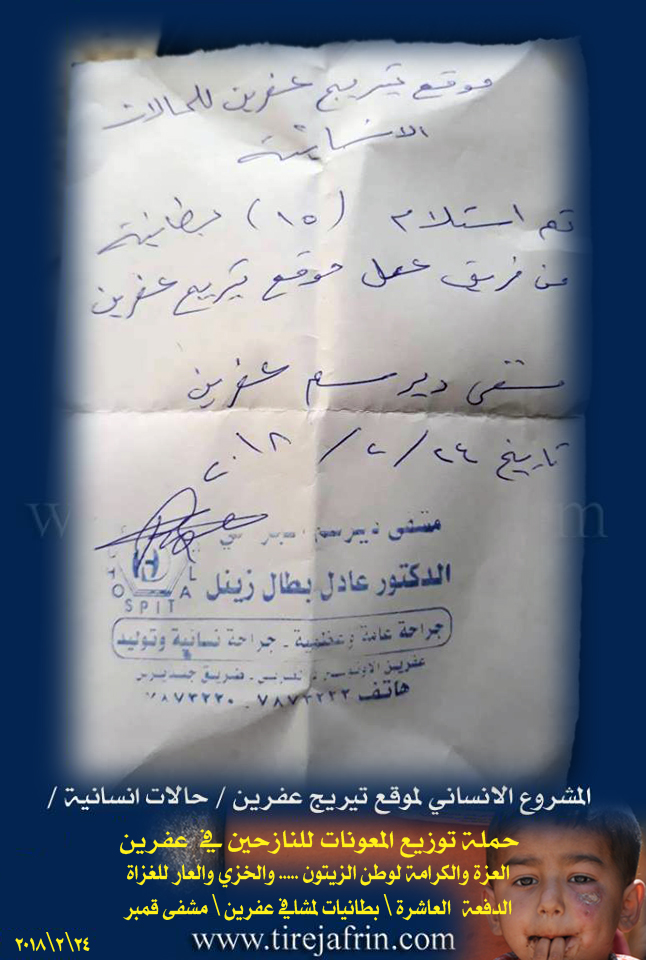 موقع تيريج عفرين للحالات
الانسانية
تم استلام (١٥) بطانية
من فريق عمل موقع تيريج عفرين
مشفى ديرسم عفرين
تاريخ ٢٤ / ٢ / ٢٠١٨
مشفى ديرسم
الدكتور عادل بطال زينل
HOSPITAL
جراحة عامة وعظمية - جراحة نسائية وتوليد
عفرين - طريق جنديرس
هاتف ٧٨٧٣٢٢٢ - ٧٨٧٣٢٢٠
المشروع الانساني لموقع تيريج عفرين / حالات انسانية /
حملة توزيع المعونات للنازحين في عفرين
العزة والكرامة لوطن الزيتون ..... والخزي والعار للغزاة
الدفعة العاشرة \ بطانيات لمشافي عفرين \ مشفى قمبر
٢٠١٨\٢\٢٤
www.tirejafrin.com